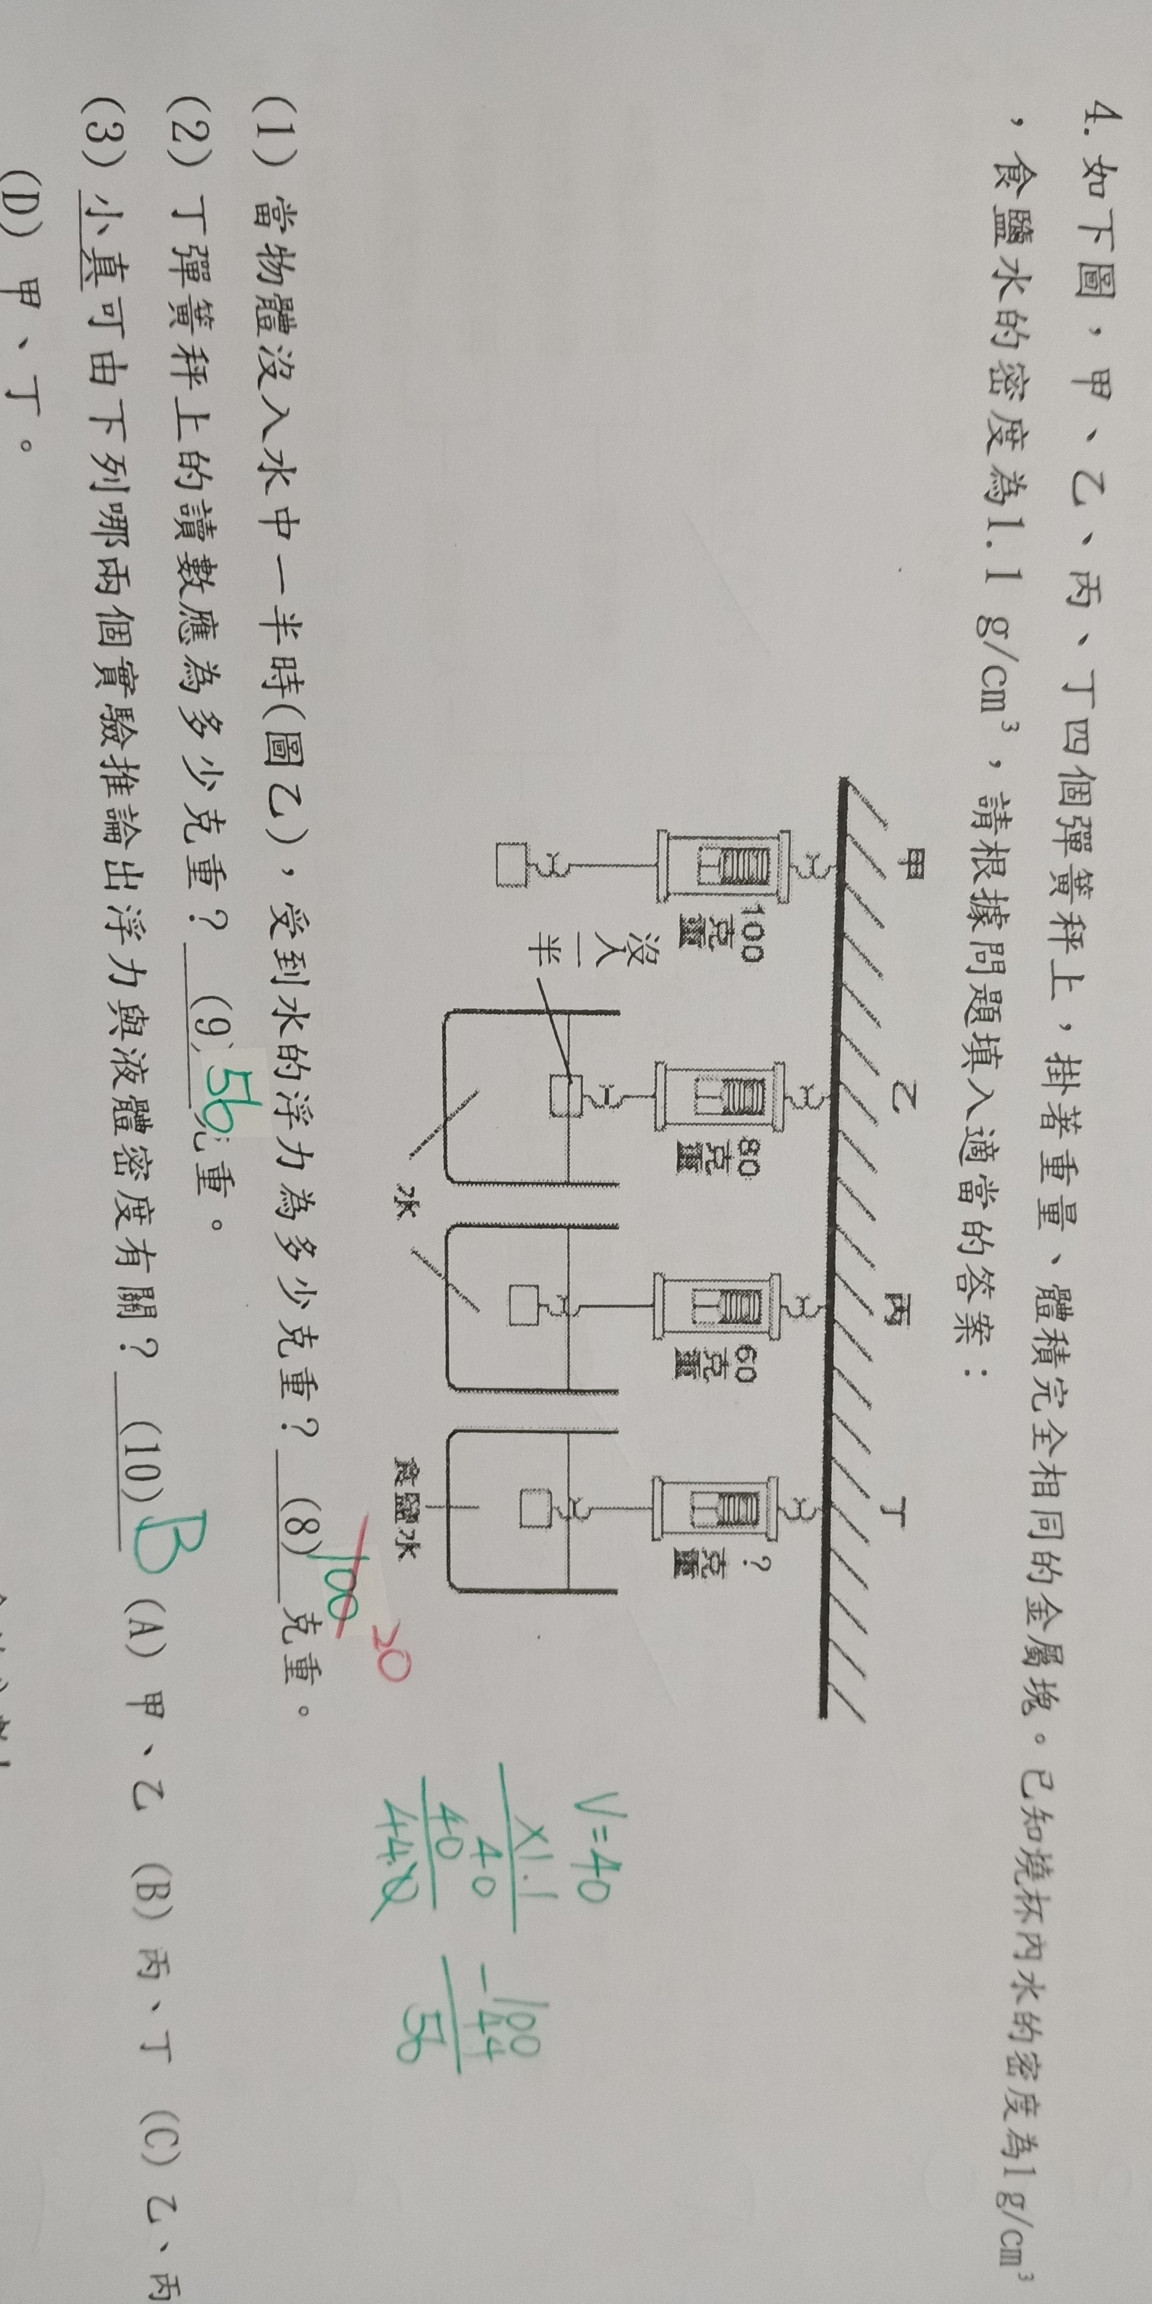 4. 如下圖，甲、乙、丙、丁四個彈簧秤上，掛著重量、體積完全相同的金屬塊。已知燒杯內水的密度為1g/cm³
，食鹽水的密度為1.1 g/cm³，請根據問題填入適當的答案：
甲 乙 丙 丁
100克重 80克重 60克重 ?克重
沒入一半
水 食鹽水
V=40
40
×1.1
40
40
44.0
100
-44
56
20
(1) 當物體沒入水中一半時(圖乙)，受到水的浮力為多少克重？ (8) 100 克重。
(2) 丁彈簧秤上的讀數應為多少克重？ (9) 56 克重。
(3) 小真可由下列哪兩個實驗推論出浮力與液體密度有關？ (10) B (A) 甲、乙 (B) 丙、丁 (C) 乙、丙
(D) 甲、丁。